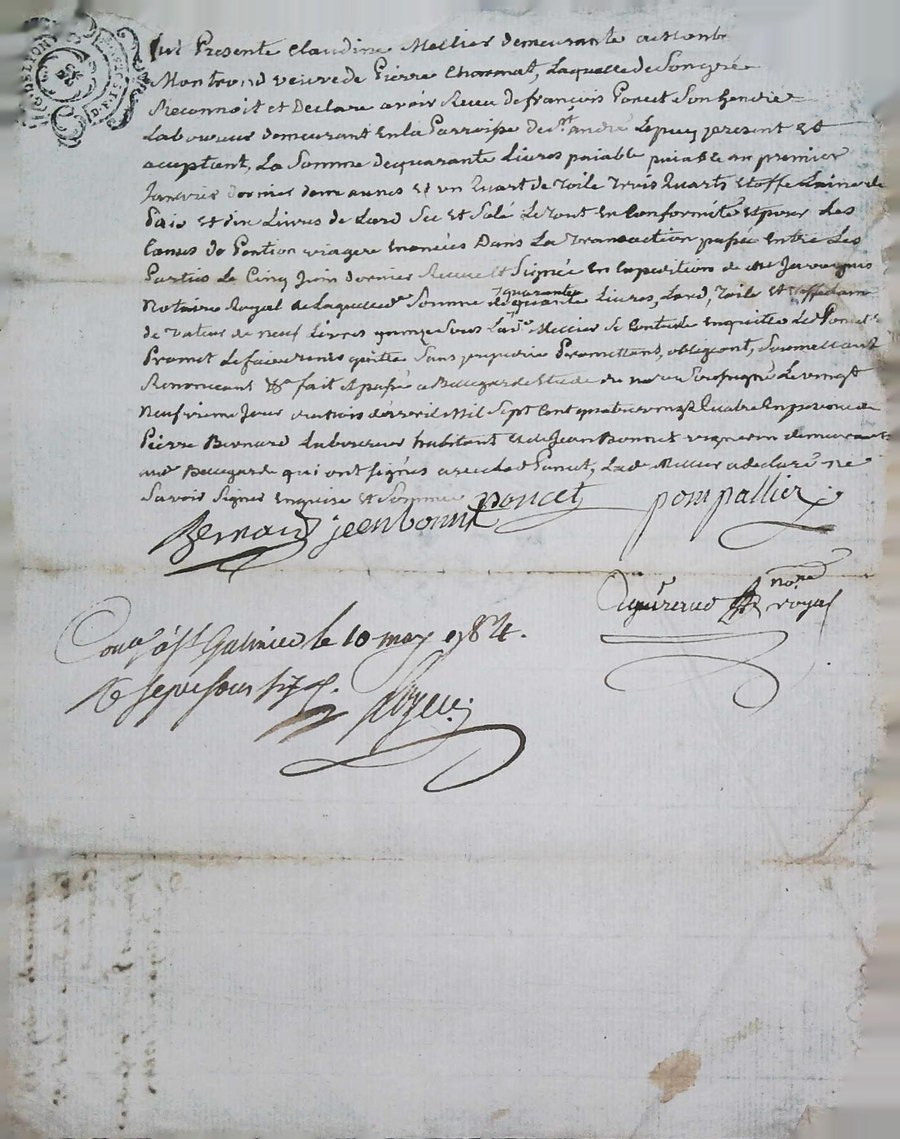 fut Presente Claudine Mellier demeurante a
Montrond veuve de Pierre Charmat, Laquelle de Son gré
Reconnoit et Declare avoir Receu de françois Poncet Son Gendre
Laboureur demeurant En la Parroisse de St. andré Lepuy present Et
aceptant, La Somme de quarante Livres paiable paiable au premier
Janvier dernier demi aunes Et un Quart de Toile Trois Quarts Etoffe Laine de
Païs Et dix Livres de Lard Sec Et Salé Le tout En Conformité Et pour Les
Causes de Pention viagere Enoncées Dans La Transaction passée Entre Les
Parties Le Cinq Juin dernier Receue Et Signée En Expedition de me
Notaire Royal de Laquelle de Somme de quarante Livres, Lard, Toile Et
de valeur de neuf Livres quinze Sous Lade. Mellier Se Contente Enquitte Led Poncet
Promet Le faire tenir quitte Sans prejudice Promettant, obligeant, Soumettant
Renoncant &c fait Et passé a Bellegarde Etude du nore. Soussigné Le vingt
neufvieme Jour d'avril Mil Sept Cent quatre vingt Quatre En presence de
Pierre Bernard Laboureur habitant Et de Jean Bonnet vigneron demeurants
aud Bellegarde qui ont signés avec Led Poncet, Lade Mellier a declaré ne
Savoir Signer Enquise Et Sommée
Bernard jeen bonnet poncet pompallier
nore
royal
Coné à St. Galmier le 10 may 1784.